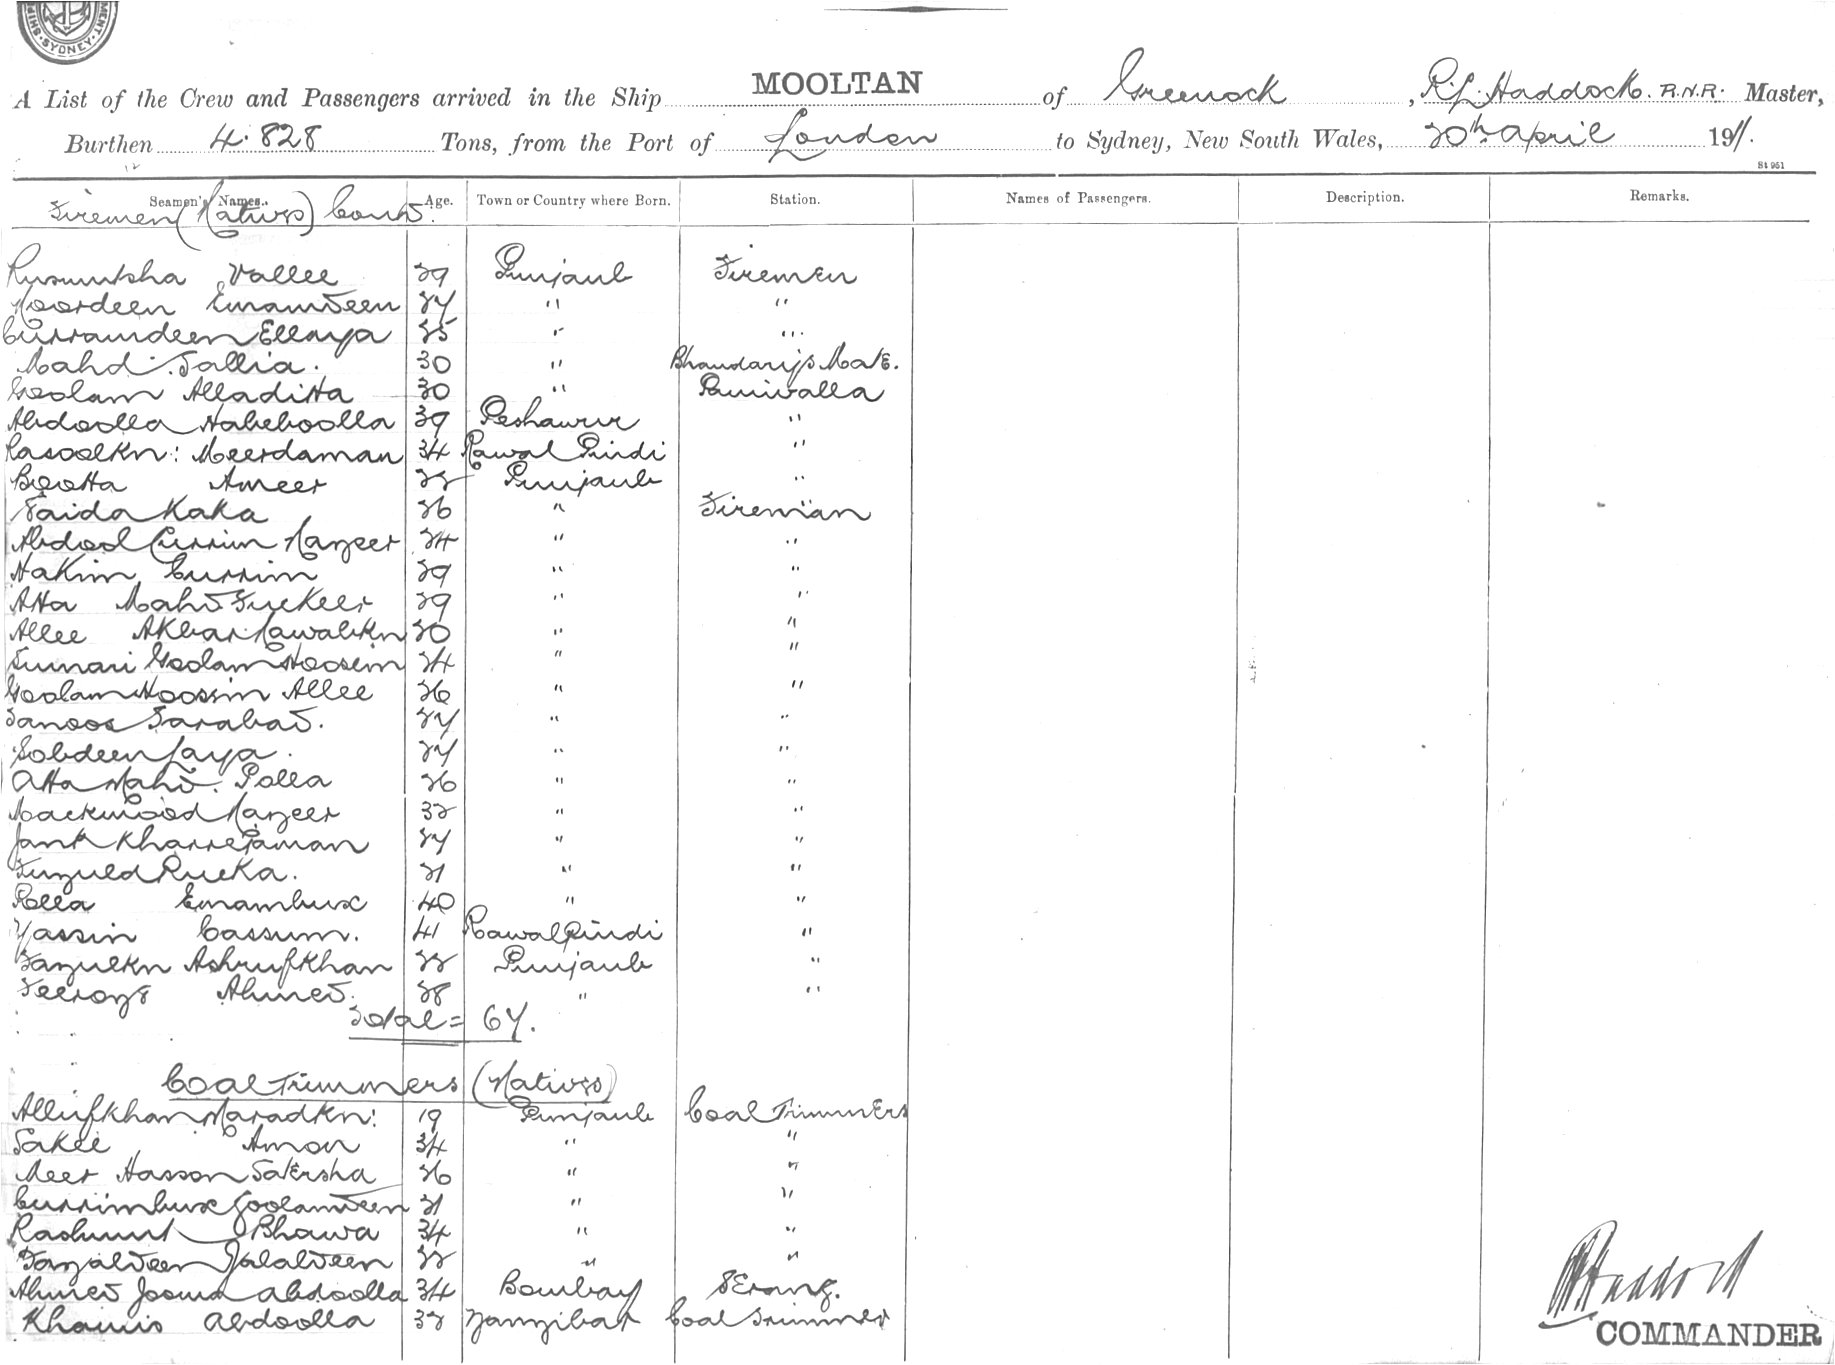 SYDNEY
A List of the Crew and Passengers arrived in the Ship MOOLTAN of Greenock, R.L. Haddock. R.N.R. Master,
Burthen 4.828 Tons, from the Port of London to Sydney, New South Wales, 20th April 1911.
St 951
Seamen's Names. Age. Town or Country where Born. Station. Names of Passengers. Description. Remarks.
Firemen (Natives) Contd.
Vallee 29 Punjaub Firemen
Noordeen Emamdeen 27 " "
Currumdeen Ellaya 25 " "
Mahd. Tallia. 30 " Bhandary's Mate.
Goolam Alladitta 30 " Paniwalla
Abdoolla Habeboolla 39 Peshawur "
Rasoolkn: Meerdaman 34 Rawal Pindi "
Bootta Ameer 22 Punjaub "
Saida Kaka 26 " Fireman
Abdool Currim Nazeer 24 " "
Hakim Currim 29 " "
Atta Mahd Fuckeer 29 " "
Allee Akbar Nawabkn 30 " "
Goolam Hoosein 24 " "
Goolam Hoossin Allee 26 " "
Sarabad. 27 " "
Sobdeen Jaya. 27 " "
Atta Mahd. Polla 26 " "
Mackmood Nazeer 32 " "
27 " "
21 " "
Polla Emambux 40 " "
Yassin Cassum. 41 Rawal Pindi "
Fazulkn Ashrufkhan 22 Punjaub "
Ahmed. 28 " "
Total = 67.
Coal Trimmers (Natives)
Allufkhan Maradkn: 19 Punjaub Coal Trimmers
Sakee Amon 34 " "
Meer Hasson Satersha 26 " "
Currimbux Goolamdeen 21 " "
Bhawa 34 " "
Fazaldeen Jalaldeen 22 " "
Ahmed Jooma Abdoolla 34 Bombay Serang.
Khamis Abdoolla 32 Zanzibar Coal Trimmer
Haddock
COMMANDER